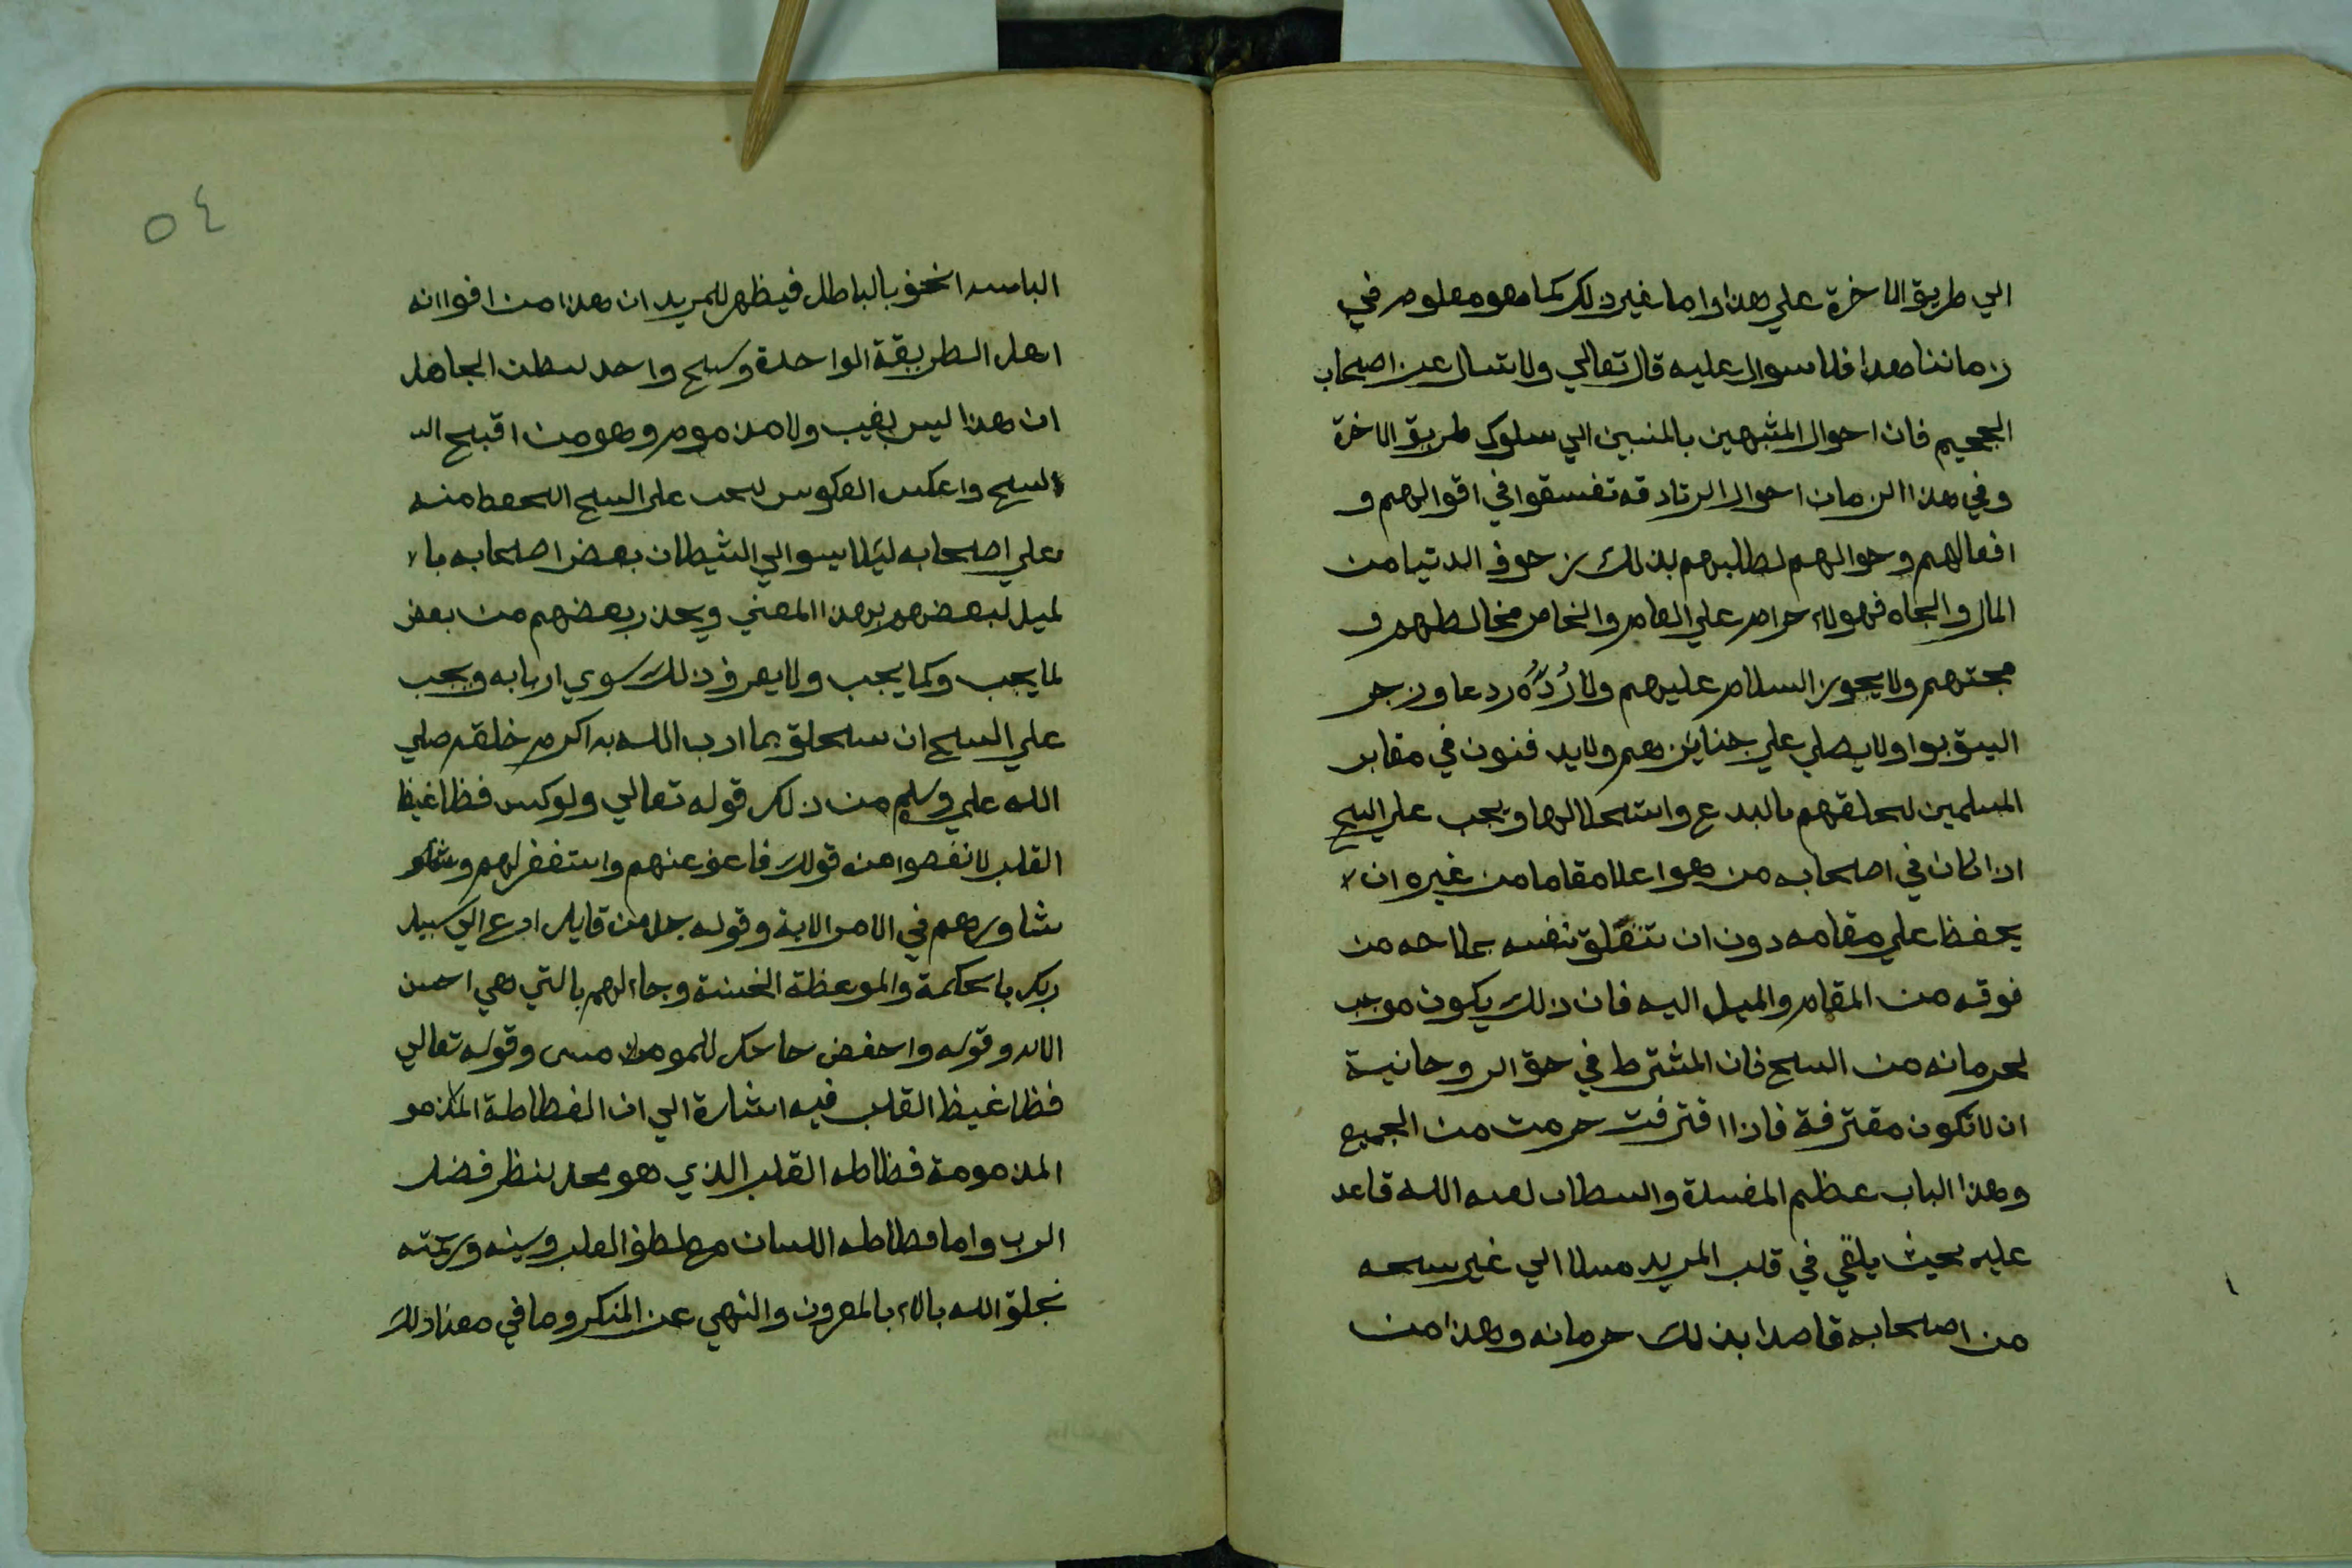 الي طريق الاخرة علي هذا واما غير ذلك كما هو معلوم في
زماننا هذا فلا سوال عليه قال تعالي ولا تسال عن اصحاب
الجحيم فان احوال المشبهين بالمنبين الي سلوك طريق الاخرة
وفي هذا الزمان احوال الزنادقه تفسقوا في اقوالهم و
افعالهم وحوالهم لطالبهم بذلك زحوف الدنيا من
المال والجاه فهولاء حرام علي العام والخاص مخالطهم و
محبتهم ولا يجوز السلام عليهم ولا رُدُّه ردعا وزجر
اليتوبوا ولا يصلي علي جنايزهم ولا يدفنون في مقابر
المسلمين لتعلقهم بالبدع واستحلالها ويجب علي الشيخ
اذا كان في اصحابه من هو اعلا مقاما من غيره ان لا
يحفظ علي مقامه دون ان تتعلق نفسه بملاحه من
فوقه من المقام والميل اليه فان ذلك يكون موجب
لحرمانه من الشيخ فان المشترط في حق الروحانية
ان لا تكون مقترفة فاذا اقترفت حرمت من الجميع
وهذا الباب عظيم المفسدة والشيطان لعنه الله قاعد
عليه بحيث يلقي في قلب المريد ميلا الي غير شيخه
من اصحابه قاصدا بذلك حرمانه وهذا من
٥٤
الباسه الحق بالباطل فيظهر للمريد ان هذا من افوا انه
اهل الطريقة الواحدة وشيخ واحد يظن الجاهل
ان هذا ليس بغيب ولا مذموم وهو من اقبح الـ
القبيح واعكس العكوس يجب علي الشيخ التحفظ منه
وعلي اصحابه ليلا يستوالي الشيطان بعض اصحابه بالا
لميل لبعضهم بهذا المعني ويحذر بعضهم من بعض
لما يجب وكما يجب ولا يعرف ذلك سوي اربابه ويجب
علي الشيخ ان يتخلق بما ادب الله به اكرم خلقه صلي
الله علي وسلم من ذلك قوله تعالي ولو كنت فظا غيظ
القلب لانفضوا من قولك فاعف عنهم واستغفر لهم
شاورهم في الامر الاية وقوله جل من قايل ادع الي سبيل
ربك بالحكمة والموعظة الحسنة وجادلهم بالتي هي احسن
الايه وقوله واخفض جناحك للمومنين وقوله تعالي
فظا غيظ القلب فيه اشارة الي ان الفظاظة المذمو
المذمومة فظاظه القلب الذي هو محل نظر فضل
الرب واما فظاظه اللسان مع لطف القلب ولينه ورحمته
تخلق الله بالامر بالمعروف والنهي عن المنكر وما في معنا ذلك